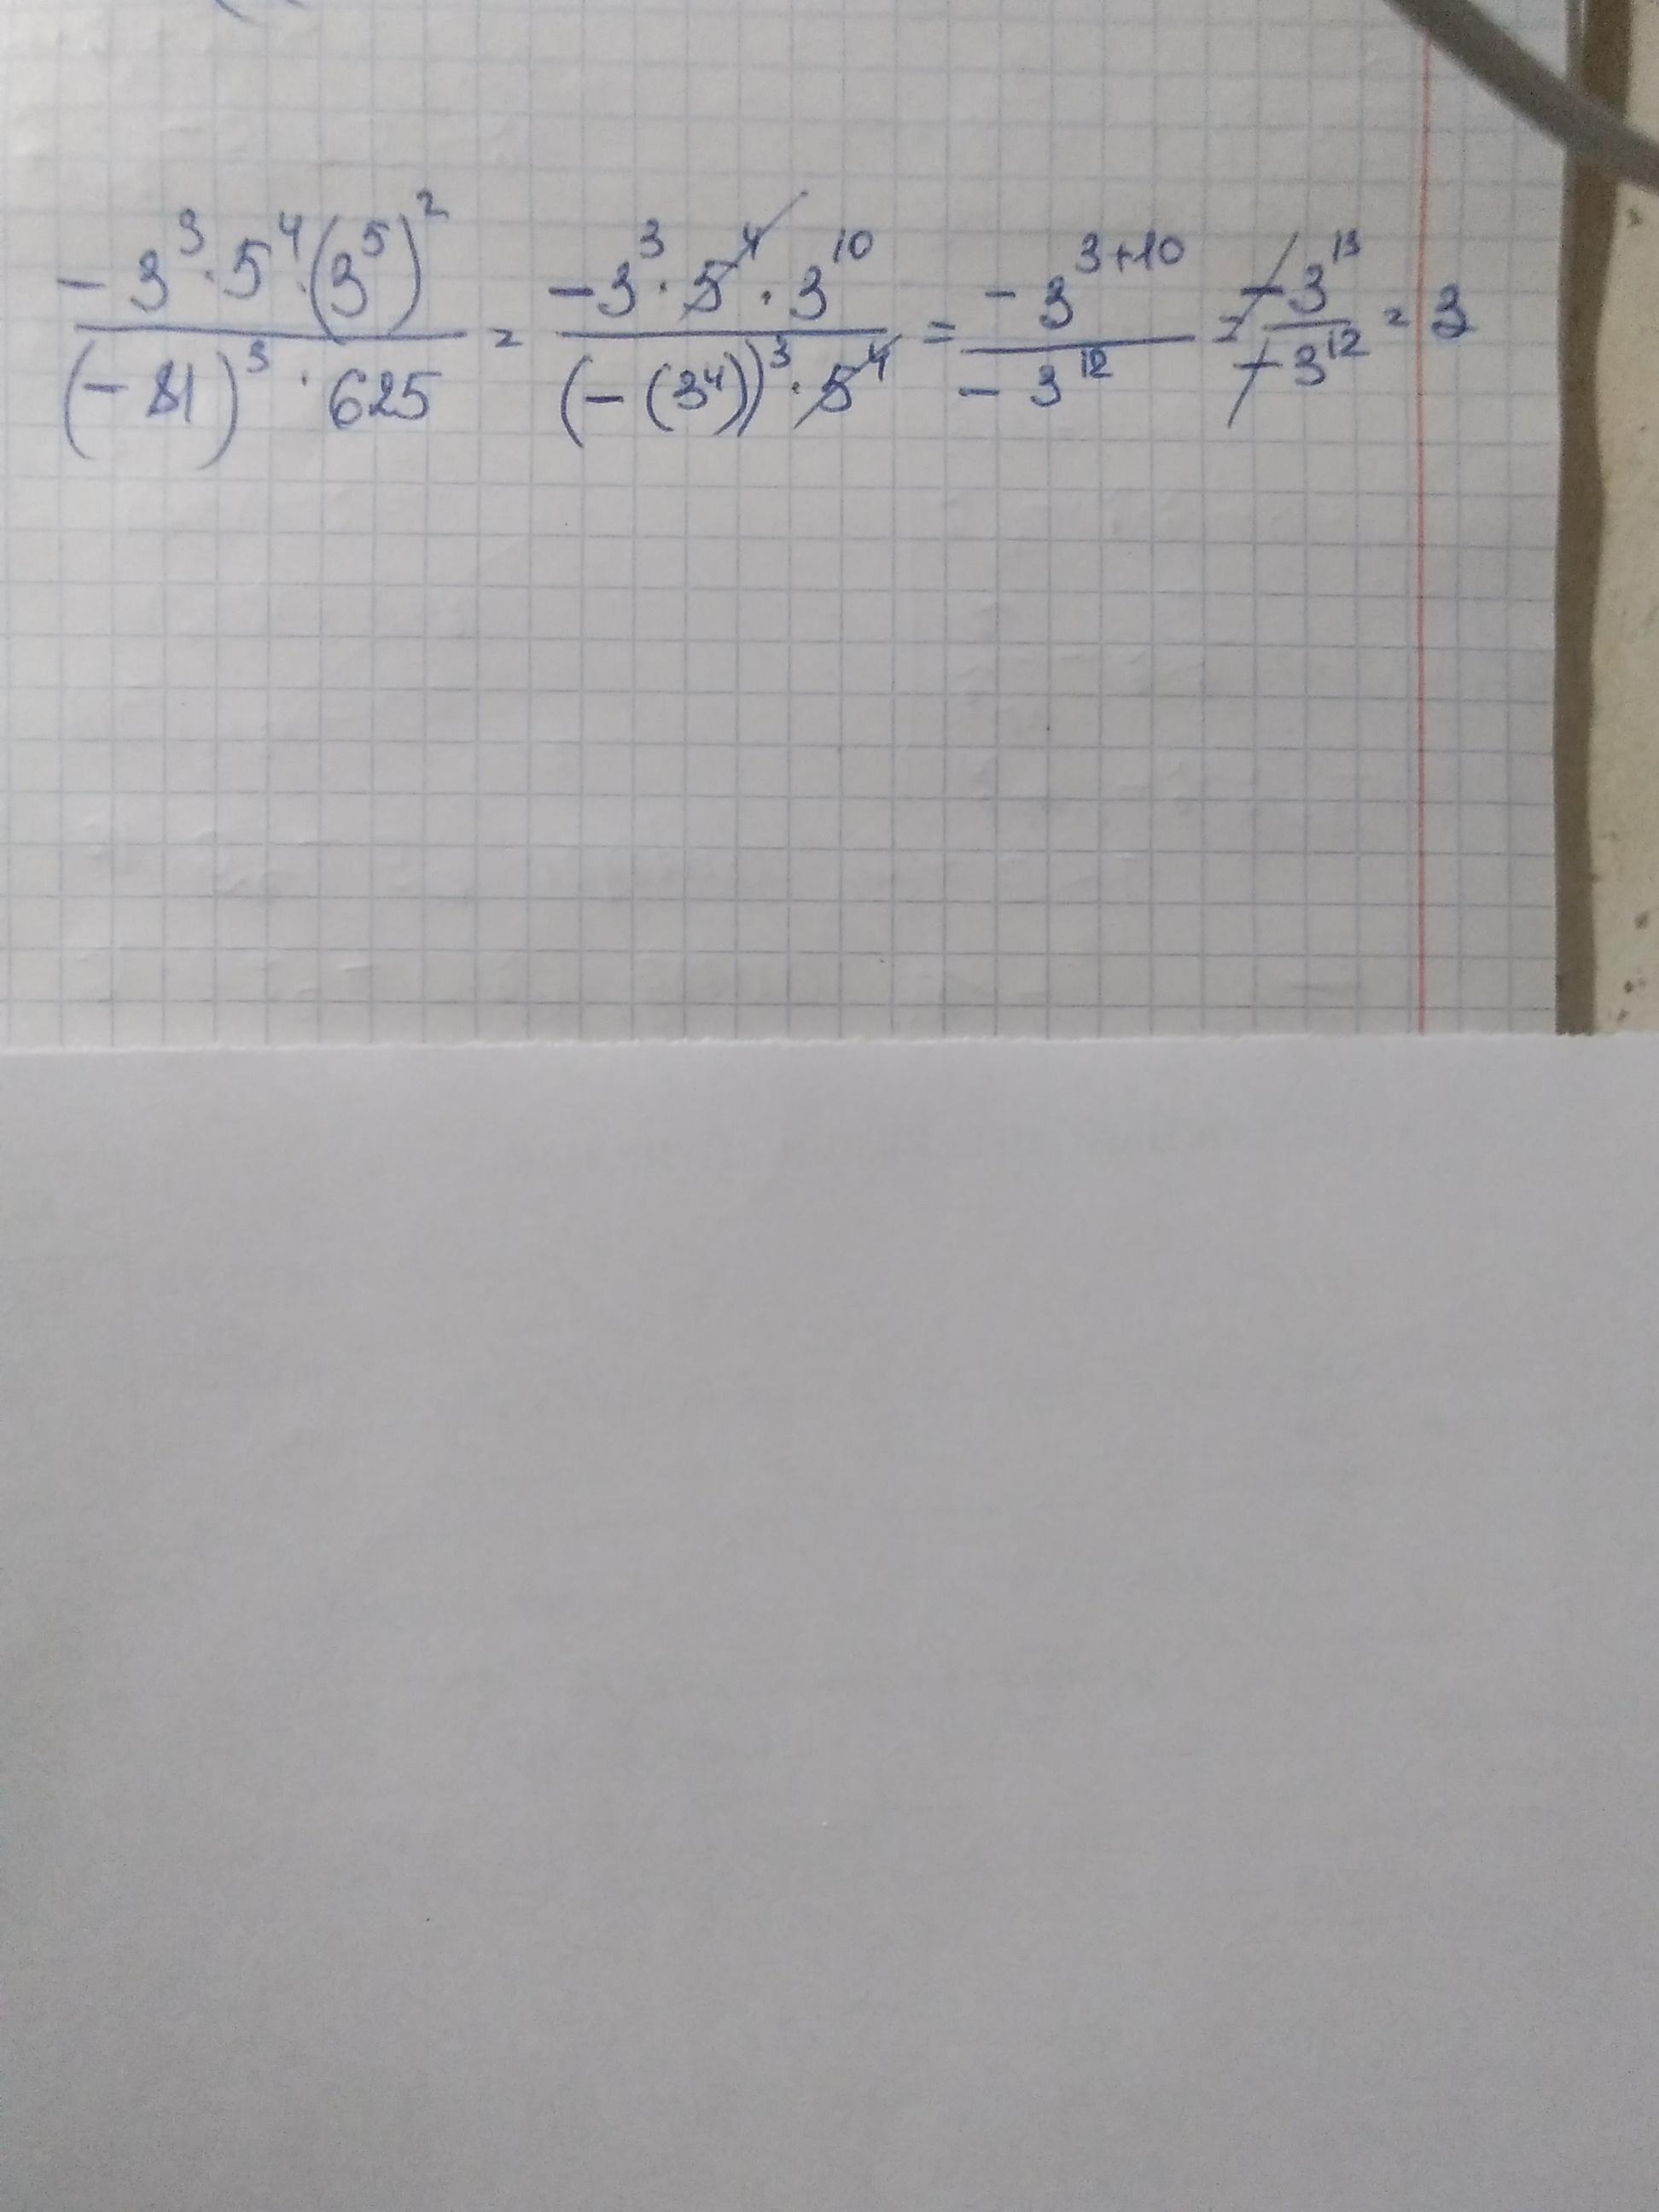 (-3³·5⁴·(3⁵)²)/((-81)³·625) = (-3³·5⁴·3¹⁰)/((-(3⁴))³·5⁴) = (-3³⁺¹⁰)/(-3¹²) = (-3¹³)/(-3¹²) = 3